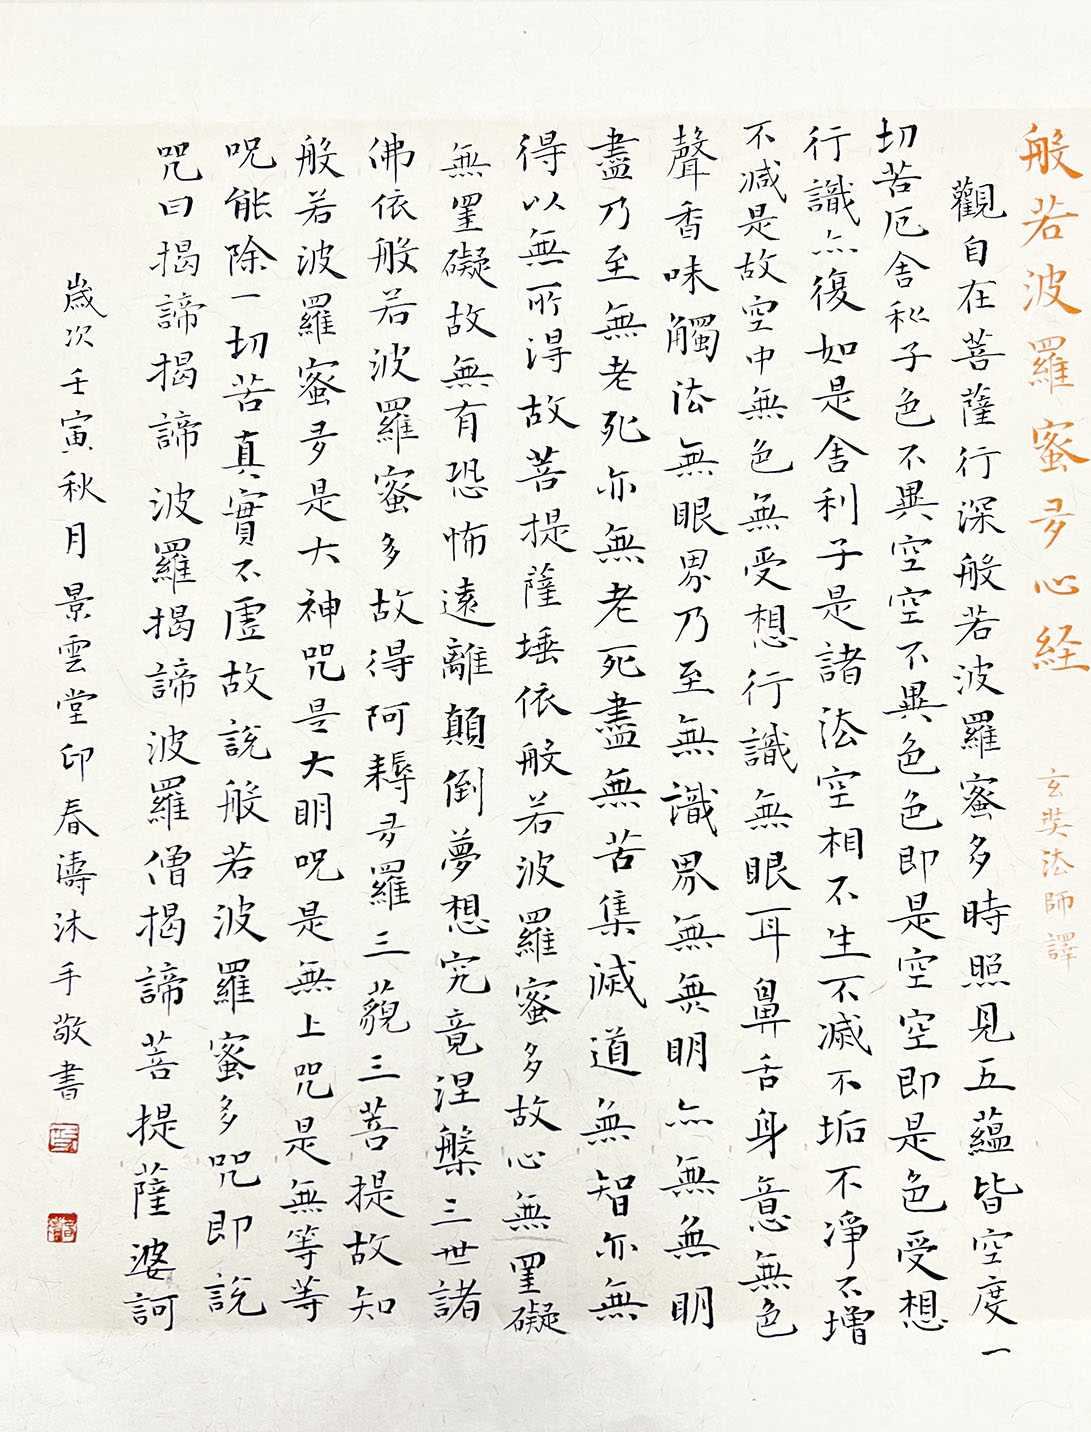 般若波羅蜜多心経
玄奘法師譯
觀自在菩薩行深般若波羅蜜多時照見五蘊皆空度一
切苦厄舍利子色不異空空不異色色即是空空即是色受想
行識亦復如是舍利子是諸法空相不生不滅不垢不淨不增
不減是故空中無色無受想行識無眼耳鼻舌身意無色
聲香味觸法無眼界乃至無識界無無明亦無無明
盡乃至無老死亦無老死盡無苦集滅道無智亦無
得以無所得故菩提薩埵依般若波羅蜜多故心無罣礙
無罣礙故無有恐怖遠離顛倒夢想究竟涅槃三世諸
佛依般若波羅蜜多故得阿耨多羅三藐三菩提故知
般若波羅蜜多是大神咒是大明咒是無上咒是無等等
呪能除一切苦真實不虛故說般若波羅蜜多咒即說
咒曰揭諦揭諦波羅揭諦波羅僧揭諦菩提薩婆訶
歲次壬寅秋月景雲堂印春濤沐手敬書